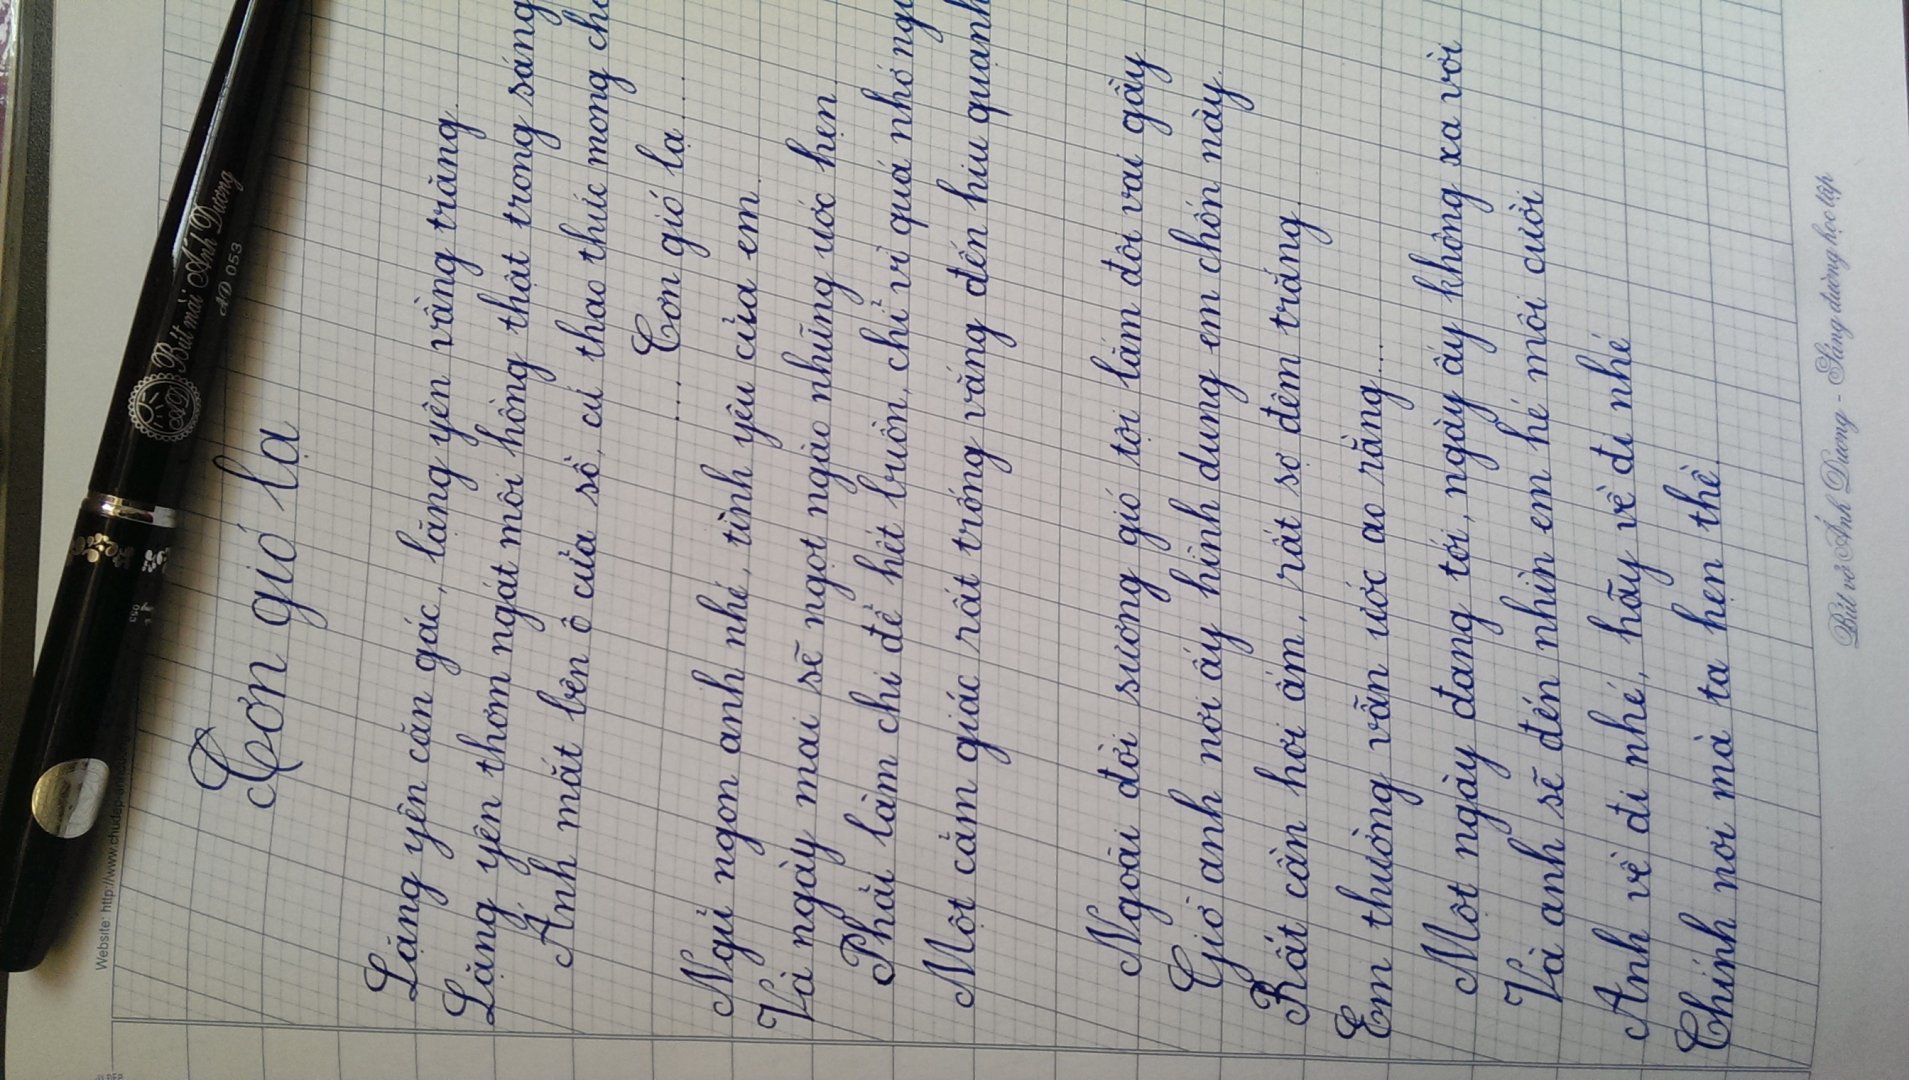 Bút mài Ánh Dương
AD 053
Website: http://www.chudep
Cơn gió lạ
Lặng yên căn gác, lặng yên vầng trăng.
Lặng yên thơm ngát môi hồng thật trong sáng
Ánh mắt bên ô cửa sổ, cứ thao thức mong
.... Cơn gió lạ....
Ngủ ngon anh nhé, tình yêu của em.
Và ngày mai sẽ ngọt ngào những ước hẹn
Phải làm chi để hết buồn, chỉ vì quá nhớ
Một cảm giác rất trống vắng đến hiu quạnh
Ngoài đời sương gió tội lắm đôi vai gầy
Giờ anh nơi ấy hình dung em chốn này.
Rất cần hơi ấm, rất sợ đêm trắng.
Em thường vẫn ước ao rằng....
Một ngày đang tới, ngày ấy không xa vời
Và anh sẽ đến nhìn em hé môi cười
Anh về đi nhé, hãy về đi nhé
Chính nơi mà ta hẹn thề.
Bút vở Ánh Dương - Sáng đường học tập